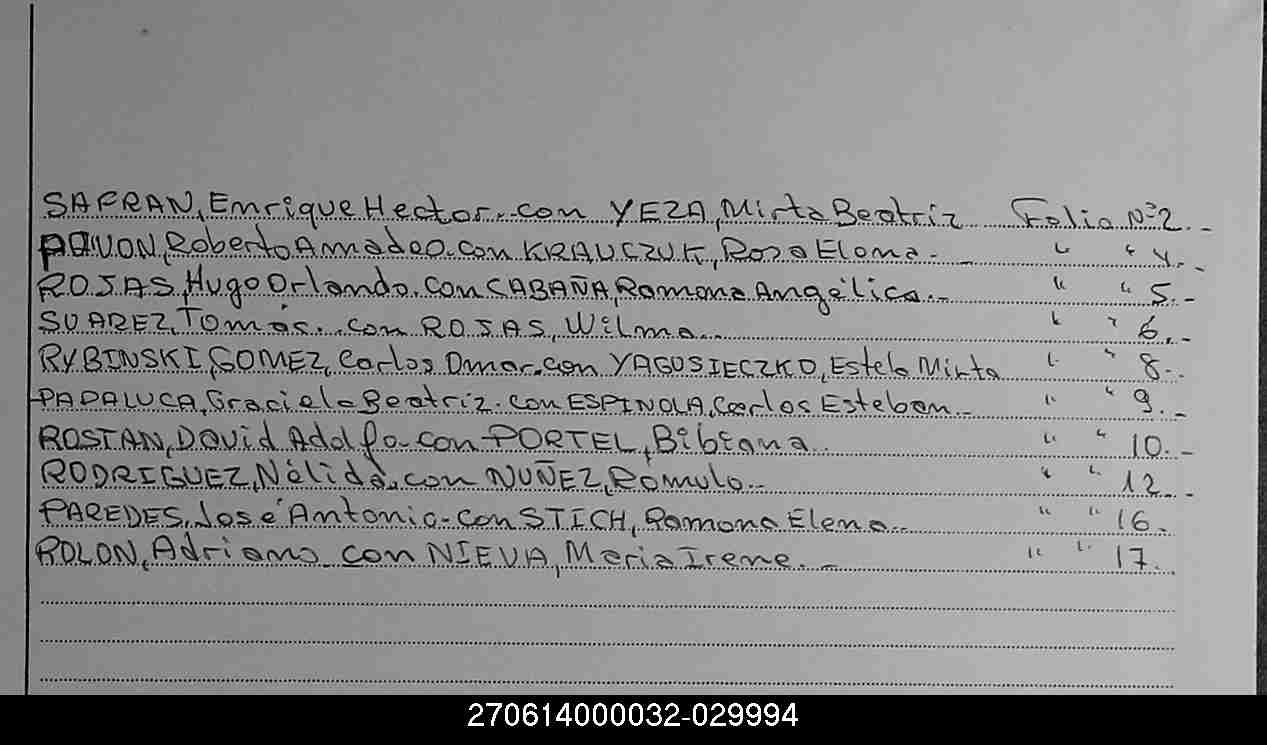 SAFRAN, Enrique Hector.- con YEZA, Mirta Beatriz Folio Nº 2.-
PAVON, Roberto Amadeo. con KRAUCZUK, Rosa Elena.- " " 4.-
ROJAS, Hugo Orlando. con CABAÑA, Ramona Angélica.- " " 5.-
SUAREZ, Tomás.- con ROJAS, Wilma.- " " 6.-
RYBINSKI, GOMEZ, Carlos Omar. con YAGUSIECZKO, Estela Mirta " " 8.-
PADALUCA, Graciela Beatriz. con ESPINOLA, Carlos Esteban.- " " 9.-
ROSTAN, David Adolfo- con PORTEL, Bibiana. " " 10.-
RODRIGUEZ, Nélida. con NUÑEZ, Romulo.- " " 12.-
PAREDES, José Antonio- con STICH, Ramona Elena.- " " 16.
ROLON, Adriano con NIEVA, Maria Irene.- " " 17.
270614000032-029994